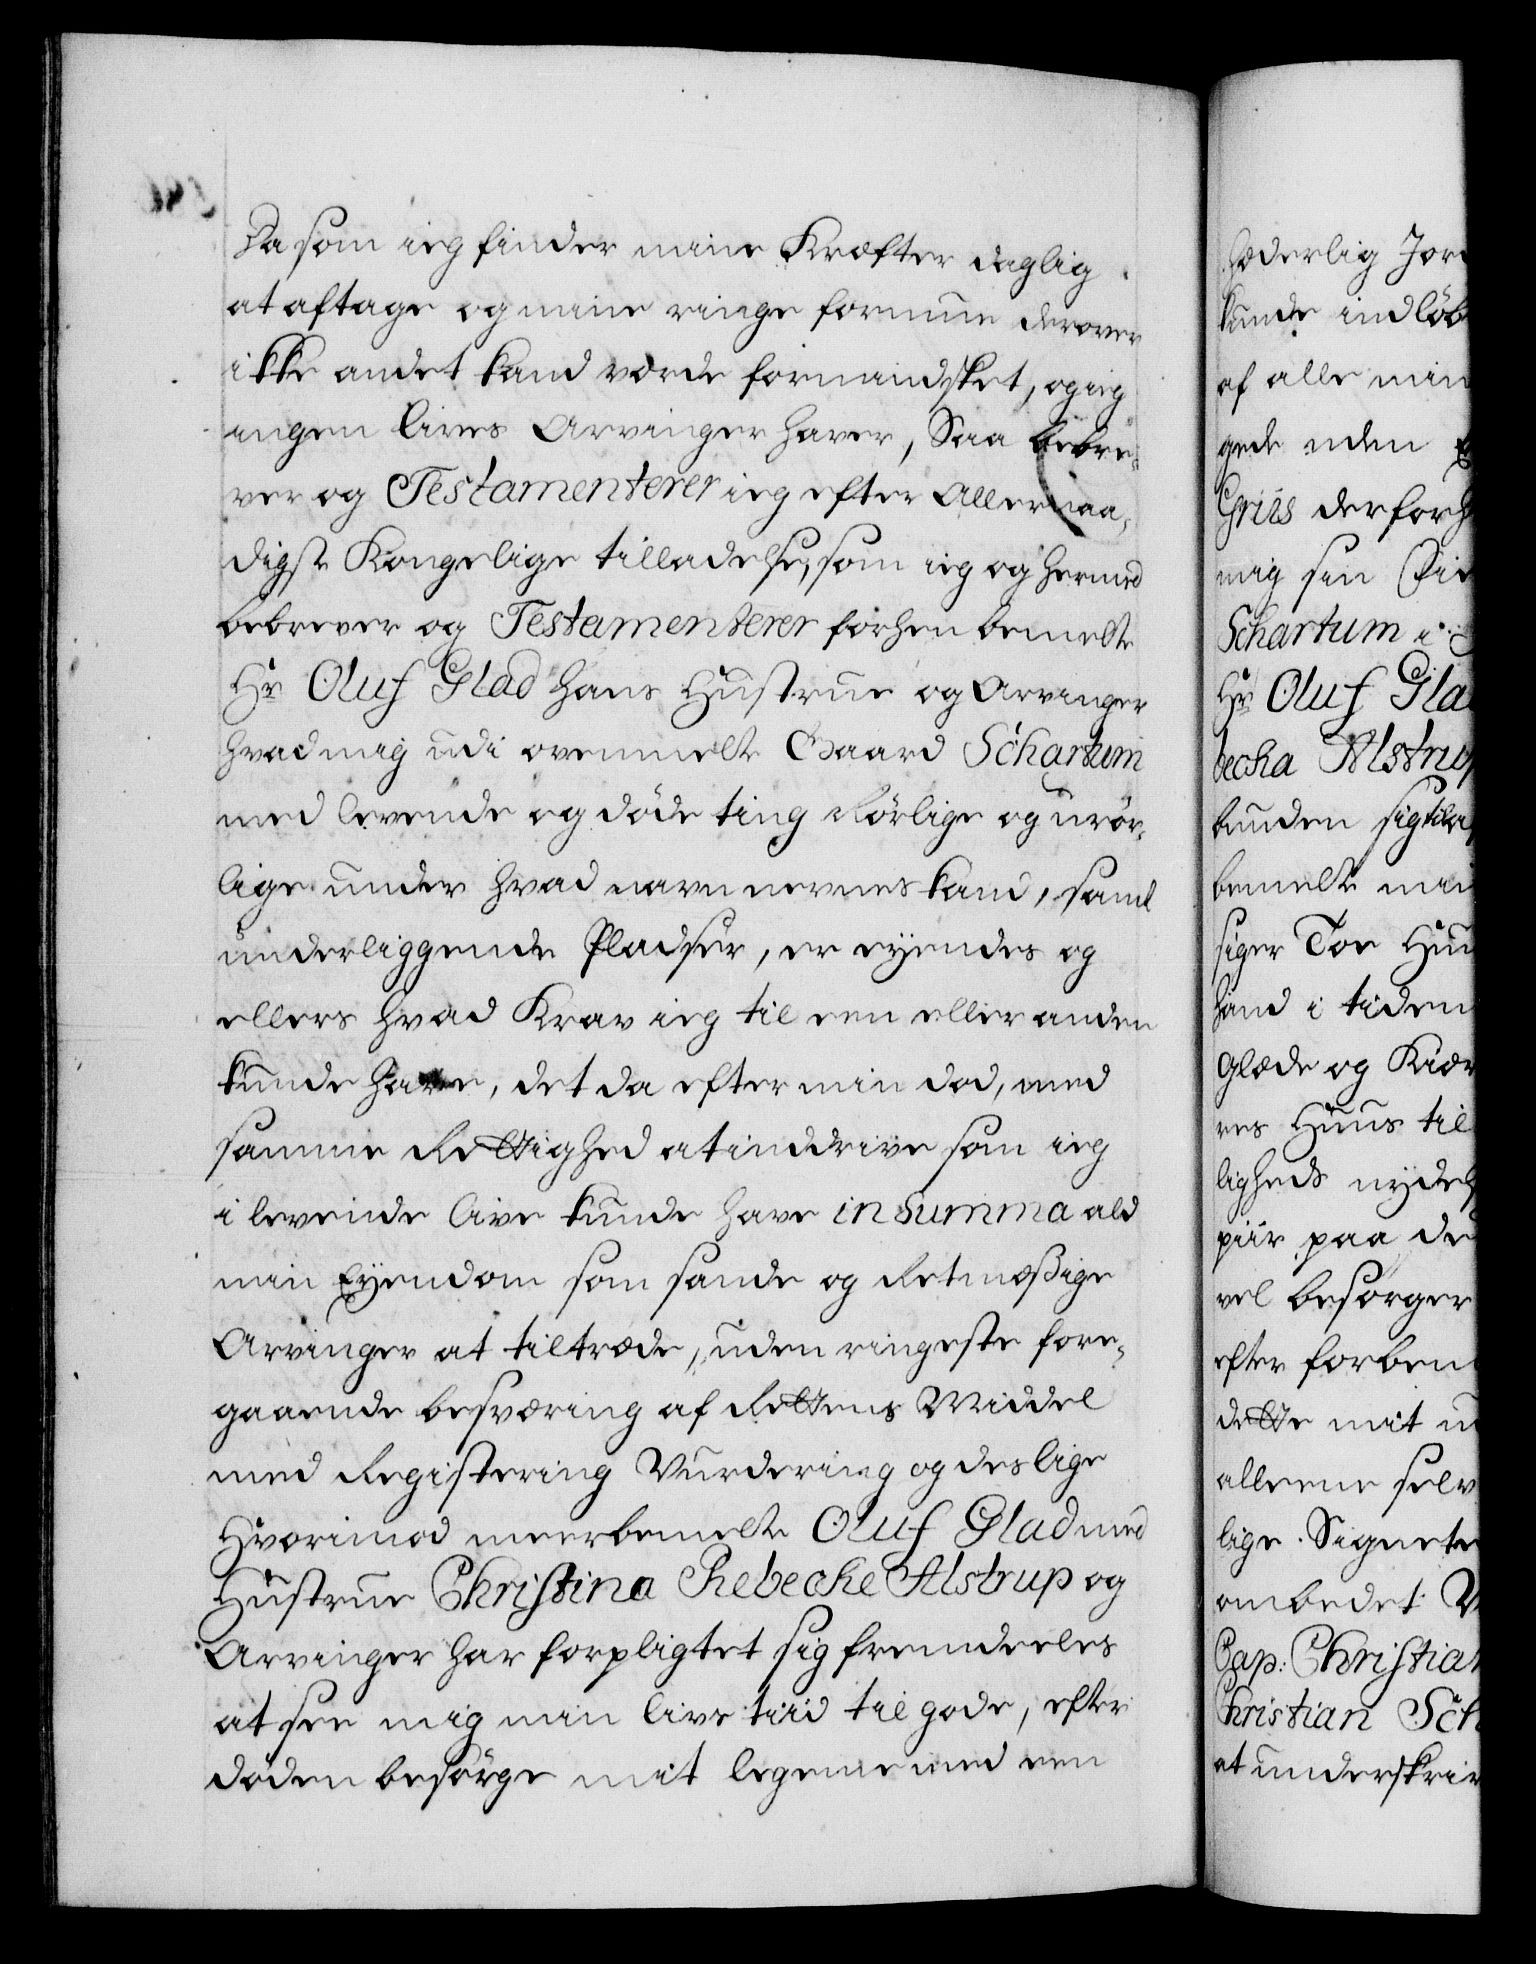 Da som ieg finder mine Kræfter daglig
at aftage og mine ringe formue derover
ikke andet kand vorde formindsket, og ieg
ingen livs Arvinger haver, Saa bebre-
ver og Testamenterer ieg efter Allernaa-
digst Kongelige tilladelse, som ieg og hermed
bebrever og Testamenterer forhen bemelte
Hr Oluf Glad hans Hustrue og Arvinger
hvad mig udi ovenmelte Gaard Schartum
med levende og døde ting Rørlige og urør-
lige under hvad navn nevnes kand, samt
underliggende Pladser, er eyendes og
ellers hvad Krav ieg til een eller anden
kunde have, det da efter min død, med
samme Rettighed at inddrive som ieg
i levende live kunde have in Summa ald
min Eyendom som sande og Retmæßige
Arvinger at tiltræde, uden ringeste fore-
gaaende besværing af Rettens Middel
med Registering Vurdering og deslige
Hvorimod meerbemelte Oluf Glad med
Hustrue Christina Rebecke Alstrup og
Arvinger har forpligtet sig fremdeeles
at see mig min livs tiid til gode, efter
døden besørge mit legeme med een
hæderlig Jor
kunde indløb
af alle min
gede uden
Griis derforh
mig sin
Schartum i
Hr Oluf Gla
becka Alstrup
bunden sig til
bemelte min
siger Toe Huu
haand i tiden
Glæde og Kiær
res Huus til
ligheds nydels
piir paa de
vel besørger
efter forben
dette mit u
alleene selv
lige Signete
ombedet
Cap: Christian
Christian Sch
at underskriv